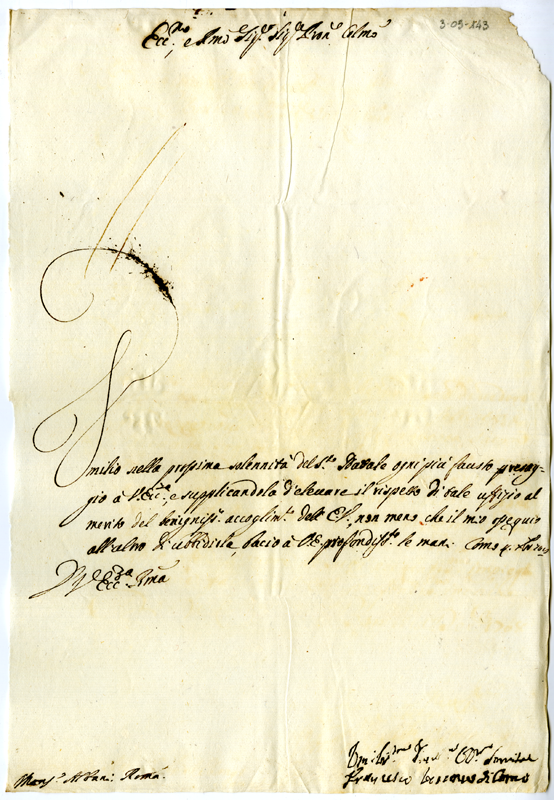 3-05-143
Ecc.mo e Rmo Sig.r Sig.r Pron.e Colmo
Umilio nella prossima solennità del S.to Natale ogni più fausto presag-
gio à V. Ecc.za, e supplicandola d'elevare il rispetto di tale uffizio al
merito del benigniss.o accoglim.to dell' E.S., non meno che il mio ossequio
all' altro di ubbidirla, bacio à V.E. profondiss.te le mani. Como
Di V.ra Ecc.za Rma
Mons.r Albani. Roma.
Umiliss.mo Ser.re
Francesco Vescovo di Como